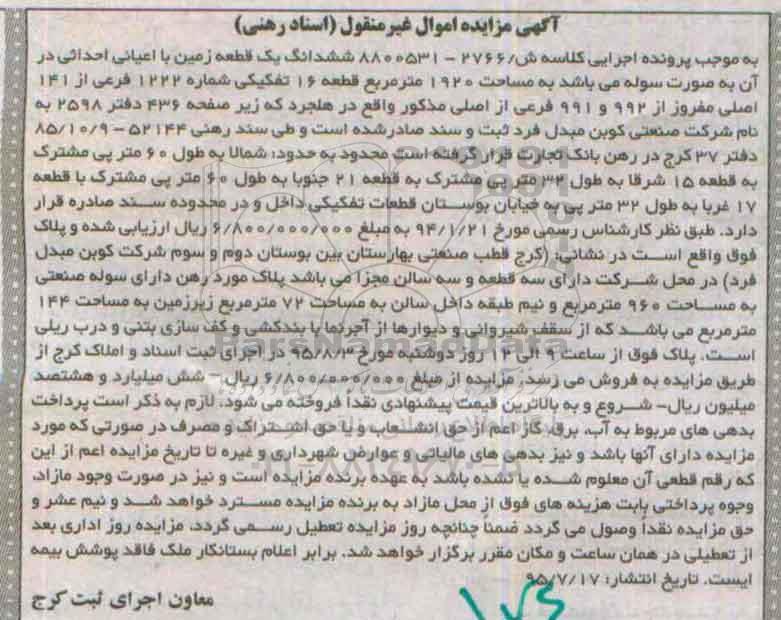 آگهی مزایده اموال غیرمنقول (اسناد رهنی)
به موجب پرونده اجرایی کلاسه ش/۲۷۶۶ – ۸۸۰۰۵۳۱ ششدانگ یک قطعه زمین با اعیانی احداثی در
آن به صورت سوله می باشد به مساحت ۱۹۲۰ مترمربع قطعه ۱۶ تفکیکی شماره ۱۲۲۲ فرعی از ۱۴۱
اصلی مفروز از ۹۹۲ و ۹۹۱ فرعی از اصلی مذکور واقع در هلجرد که زیر صفحه ۴۳۶ دفتر ۲۵۹۸ به
نام شرکت صنعتی کوبن مبدل فرد ثبت و سند صادرشده است و طی سند رهنی ۵۲۱۴۴ – ۸۵/۱۰/۹
دفتر ۳۷ کرج در رهن بانک تجارت قرار گرفته است محدود به حدود: شمالا به طول ۶۰ متر پی مشترک
به قطعه ۱۵ شرقا به طول ۳۲ متر پی مشترک به قطعه ۲۱ جنوبا به طول ۶۰ متر پی مشترک با قطعه
۱۷ غربا به طول ۳۲ متر پی به خیابان بوستان قطعات تفکیکی داخل و در محدوده سند صادره قرار
دارد. طبق نظر کارشناس رسمی مورخ ۹۴/۱/۲۱ به مبلغ ۶/۸۰۰/۰۰۰/۰۰۰ ریال ارزیابی شده و پلاک
فوق واقع است در نشانی: (کرج قطب صنعتی بهارستان بین بوستان دوم و سوم شرکت کوبن مبدل
فرد) در محل شرکت دارای سه قطعه و سه سالن مجزا می باشد پلاک مورد رهن دارای سوله صنعتی
به مساحت ۹۶۰ مترمربع و نیم طبقه داخل سالن به مساحت ۷۲ مترمربع زیرزمین به مساحت ۱۴۴
مترمربع می باشد که از سقف شیروانی و دیوارها از آجرنما با بندکشی و کف سازی بتنی و درب ریلی
است. پلاک فوق از ساعت ۹ الی ۱۲ روز دوشنبه مورخ ۹۵/۸/۳ در اجرای ثبت اسناد و املاک کرج از
طریق مزایده به فروش می رسد. مزایده از مبلغ ۶/۸۰۰/۰۰۰/۰۰۰ ریال – شش میلیارد و هشتصد
میلیون ریال– شروع و به بالاترین قیمت پیشنهادی نقدا فروخته می شود. لازم به ذکر است پرداخت
بدهی های مربوط به آب، برق، گاز اعم از حق انشعاب و یا حق اشتراک و مصرف در صورتی که مورد
مزایده دارای آنها باشد و نیز بدهی های مالیاتی و عوارض شهرداری و غیره تا تاریخ مزایده اعم از این
که رقم قطعی آن معلوم شده یا نشده باشد به عهده برنده مزایده است و نیز در صورت وجود مازاد،
وجوه پرداختی بابت هزینه های فوق از محل مازاد به برنده مزایده مسترد خواهد شد و نیم عشر و
حق مزایده نقدا وصول می گردد ضمنا چنانچه روز مزایده تعطیل رسمی گردد، مزایده روز اداری بعد
از تعطیلی در همان ساعت و مکان مقرر برگزار خواهد شد. برابر اعلام بستانکار ملک فاقد پوشش بیمه
ایست. تاریخ انتشار: ۹۵/۷/۱۷
معاون اجرای ثبت کرج
ParsNamadData